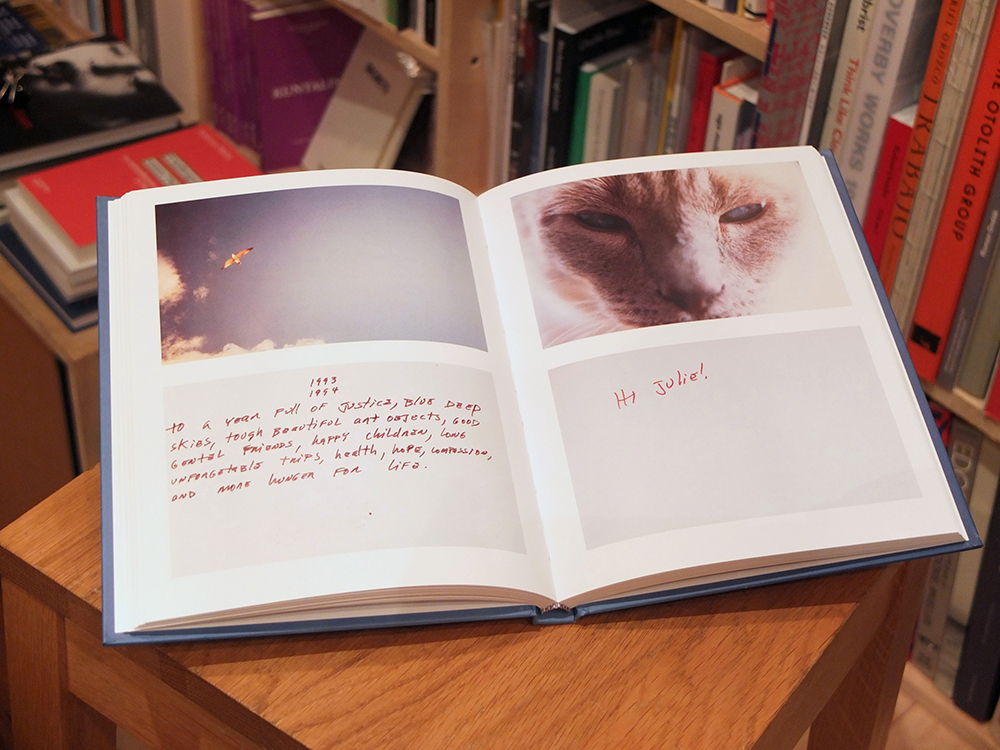 1993
1994
to a year full of justice, blue deep
skies, tough beautiful art objects, good
gentel friends, happy children, long
unforgetable trips, health, hope, compassion,
and more hunger for life.
Hi Julie!
OVERBY WORKS
Think Like
OROZCO
TRABAJO
OTOLITH GROUP